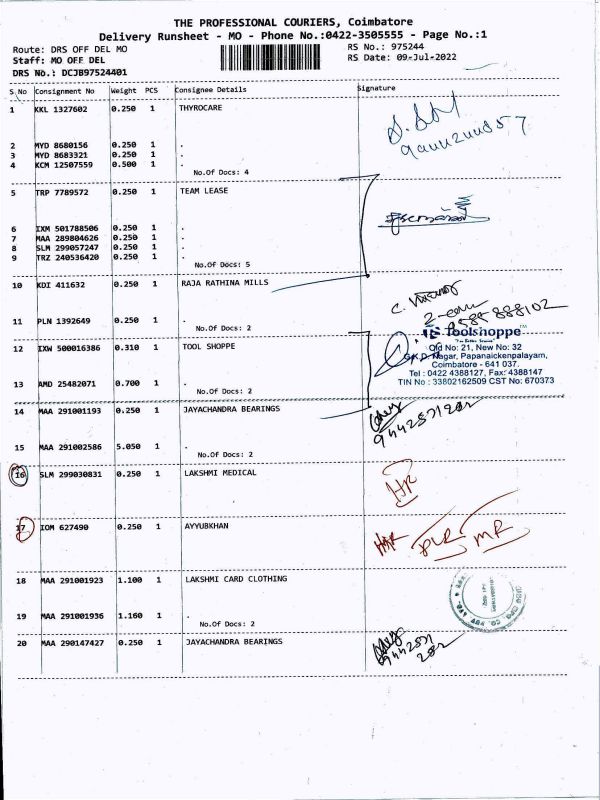 THE PROFESSIONAL COURIERS, Coimbatore
Delivery Runsheet - MO - Phone No.:0422-3505555 - Page No.:1
Route: DRS OFF DEL MO RS No.: 975244
Staff: MO OFF DEL RS Date: 09-Jul-2022
DRS No.: DCJB97524401
S No Consignment No Weight PCS Consignee Details Signature
1 KKL 1327602 0.250 1 THYROCARE
2 MYD 8680156 0.250 1 .
3 MYD 8683321 0.250 1 .
4 KCM 12507559 0.500 1 .
No.Of Docs: 4
5 TRP 7789572 0.250 1 TEAM LEASE
6 IXM 501788506 0.250 1 .
7 MAA 289804626 0.250 1 .
8 SLM 299057247 0.250 1 .
9 TRZ 240536420 0.250 1 .
No.Of Docs: 5
10 KDI 411632 0.250 1 RAJA RATHINA MILLS
11 PLN 1392649 0.250 1 .
No.Of Docs: 2
Toolshoppe™
12 IXW 500016386 0.310 1 TOOL SHOPPE
Old No: 21, New No: 32
G.K.D. Nagar, Papanaickenpalayam,
Coimbatore - 641 037.
Tel : 0422 4388127, Fax: 4388147
TIN No : 33802162509 CST No: 670373
13 AMD 25482071 0.700 1 .
No.Of Docs: 2
14 MAA 291001193 0.250 1 JAYACHANDRA BEARINGS
15 MAA 291002586 5.050 1 .
No.Of Docs: 2
16 SLM 299030831 0.250 1 LAKSHMI MEDICAL
17 IOM 627490 0.250 1 AYYUBKHAN
MR
18 MAA 291001923 1.100 1 LAKSHMI CARD CLOTHING
19 MAA 291001936 1.160 1 .
No.Of Docs: 2
20 MAA 290147427 0.250 1 JAYACHANDRA BEARINGS